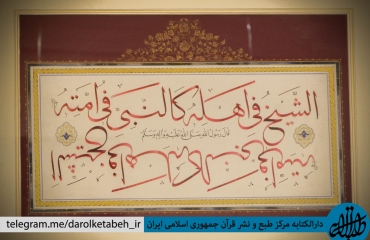 الشیخ فی اهله کالنبی فی امته
قال رسول الله صلی الله علیه وآله وسلم
الشیخ فی اهله کالنبی فی امته
telegram.me/darolketabeh_ir
دارالکتابه مرکز طبع و نشر قرآن جمهوری اسلامی ایران